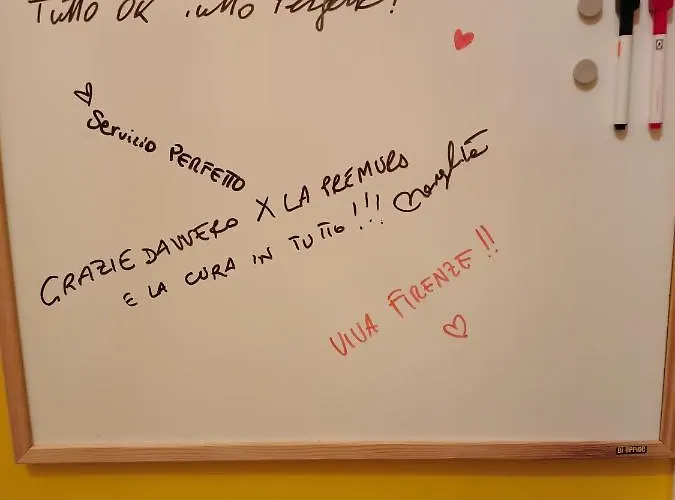 Tutto OK Tutto Perfetto!
Servicio PERFETTO
GRAZIE DAVVERO X LA PREMURA
E LA CURA IN TUTTO!!!
VIVA FIRENZE!!
BI-OFFICE